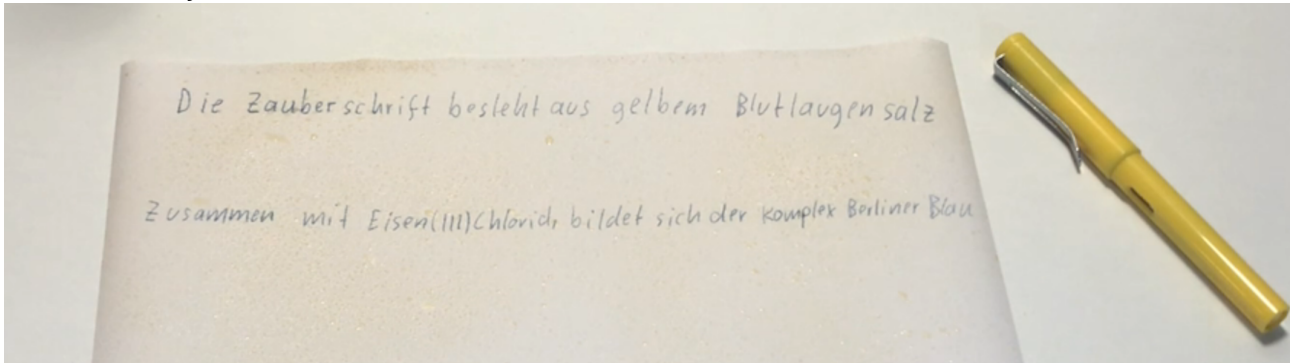 Die Zauberschrift besteht aus gelbem Blutlaugensalz
Zusammen mit Eisen(III)Chlorid, bildet sich der Komplex Berliner Blau